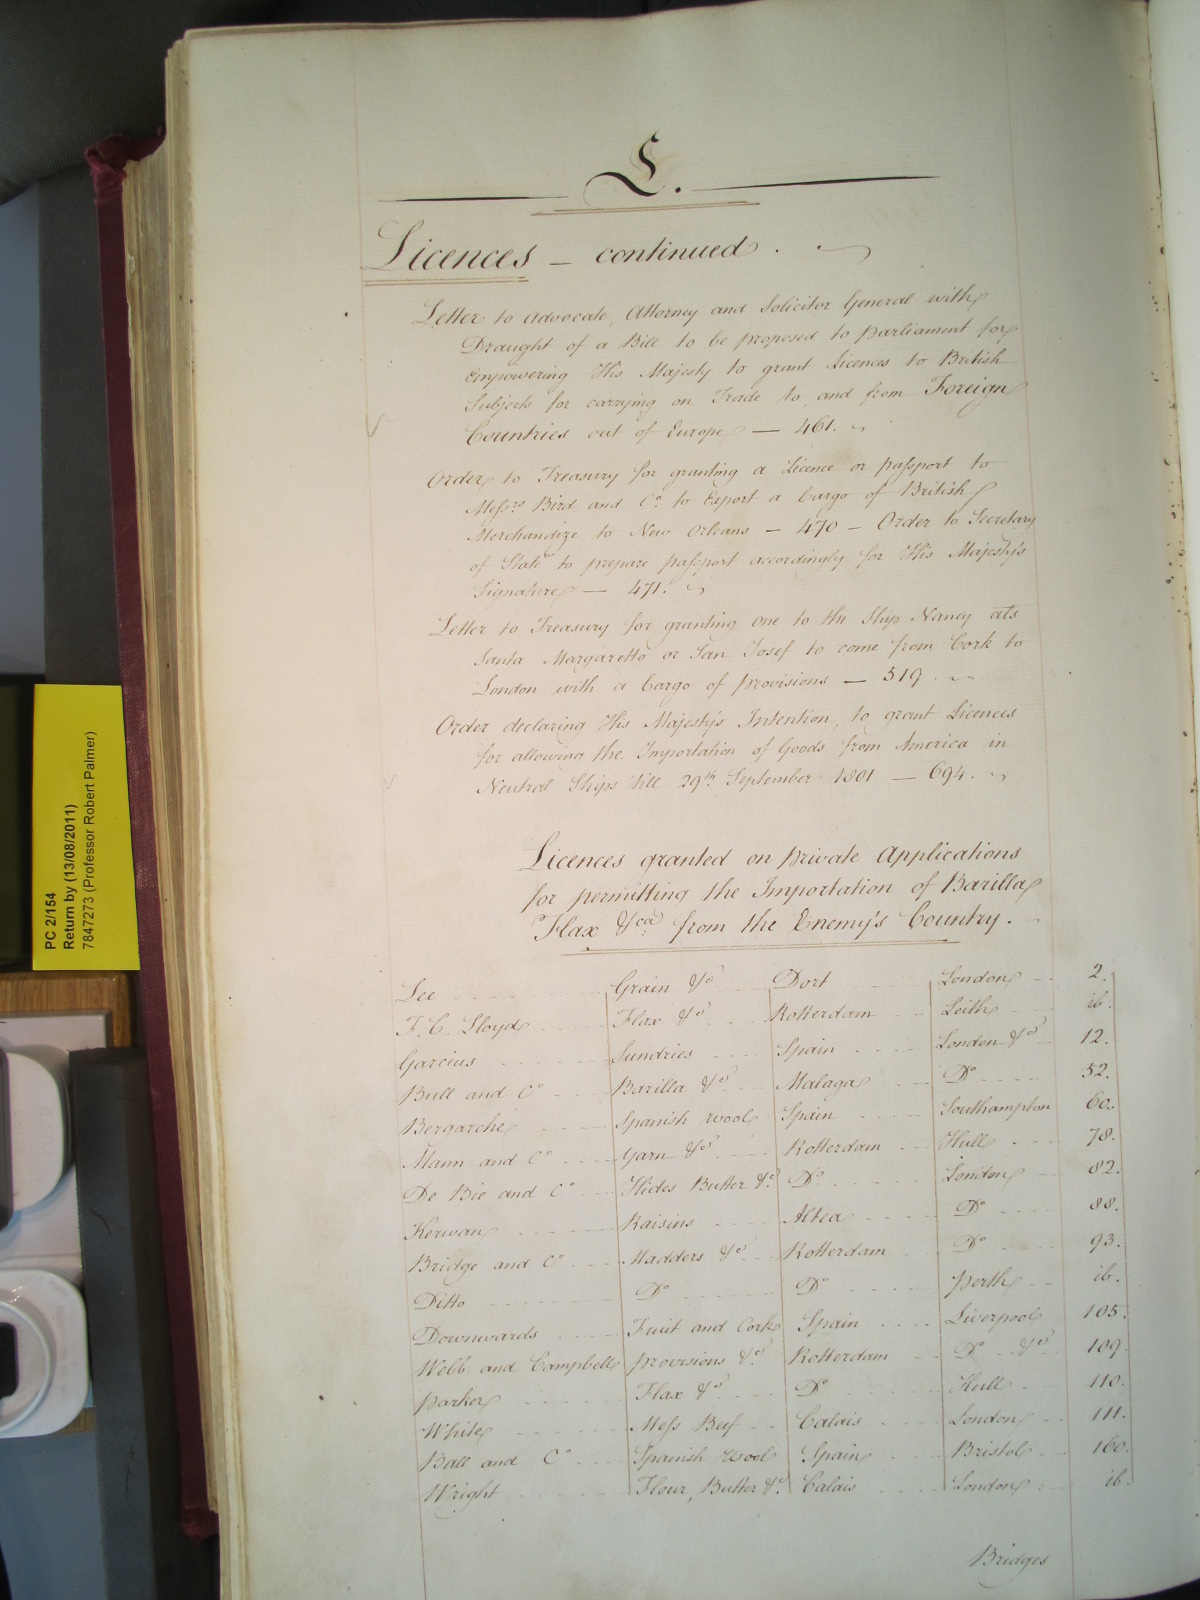 L.
Licences – continued.
Letter to Advocate, Attorney and Solicitor General with
Draught of a Bill to be proposed to parliament for
Empowering His Majesty to grant Licences to British
Subjects for carrying on Trade to and from Foreign
Countries out of Europe — 461.
Order to Treasury for granting a Licence or passport to
Messrs. Bird and Co. to Export a Cargo of British
Merchandize to New Orleans — 470 — Order to Secretary
of State to prepare passport accordingly for His Majesty's
Signature — 471.
Letter to Treasury for granting one to the Ship Nancy als
Santa Margaretto or San Josef to come from Cork to
London with a Cargo of provisions — 519.
Order declaring His Majesty's Intention, to grant Licences
for allowing the Importation of Goods from America in
Neutral Ships till 29th September 1801 — 694.
Licences granted on private Applications
for permitting the Importation of Barilla
Flax &ca. from the Enemy's Country.
Lee Grain &c Dort London 2.
F. C. Lloyd Flax &c Rotterdam Leith ib.
Garcius Sundries Spain London &c 12.
Bull and Co Barilla &c Malaga Do 52.
Bergarche Spanish wool Spain Southampton 60.
Mann and Co Yarn &c Rotterdam Hull 78.
De Bie and Co Hides Butter &c Do London 82.
Kerwan Raisins Altea Do 88.
Bridge and Co Madders &c Rotterdam Do 93.
Ditto Do Do perth ib.
Downwards Fruit and Cork Spain Liverpool 105.
Webb and Campbell provisions &c Rotterdam Do &c 109.
parker Flax &c Do Hull 110.
White Mess Beef Calais London 111.
Ball and Co Spanish wool Spain Bristol 160.
Wright Flour, Butter &c Calais London ib.
Bridges
PC 2/154
Return by (13/08/2011)
7847273 (Professor Robert Palmer)